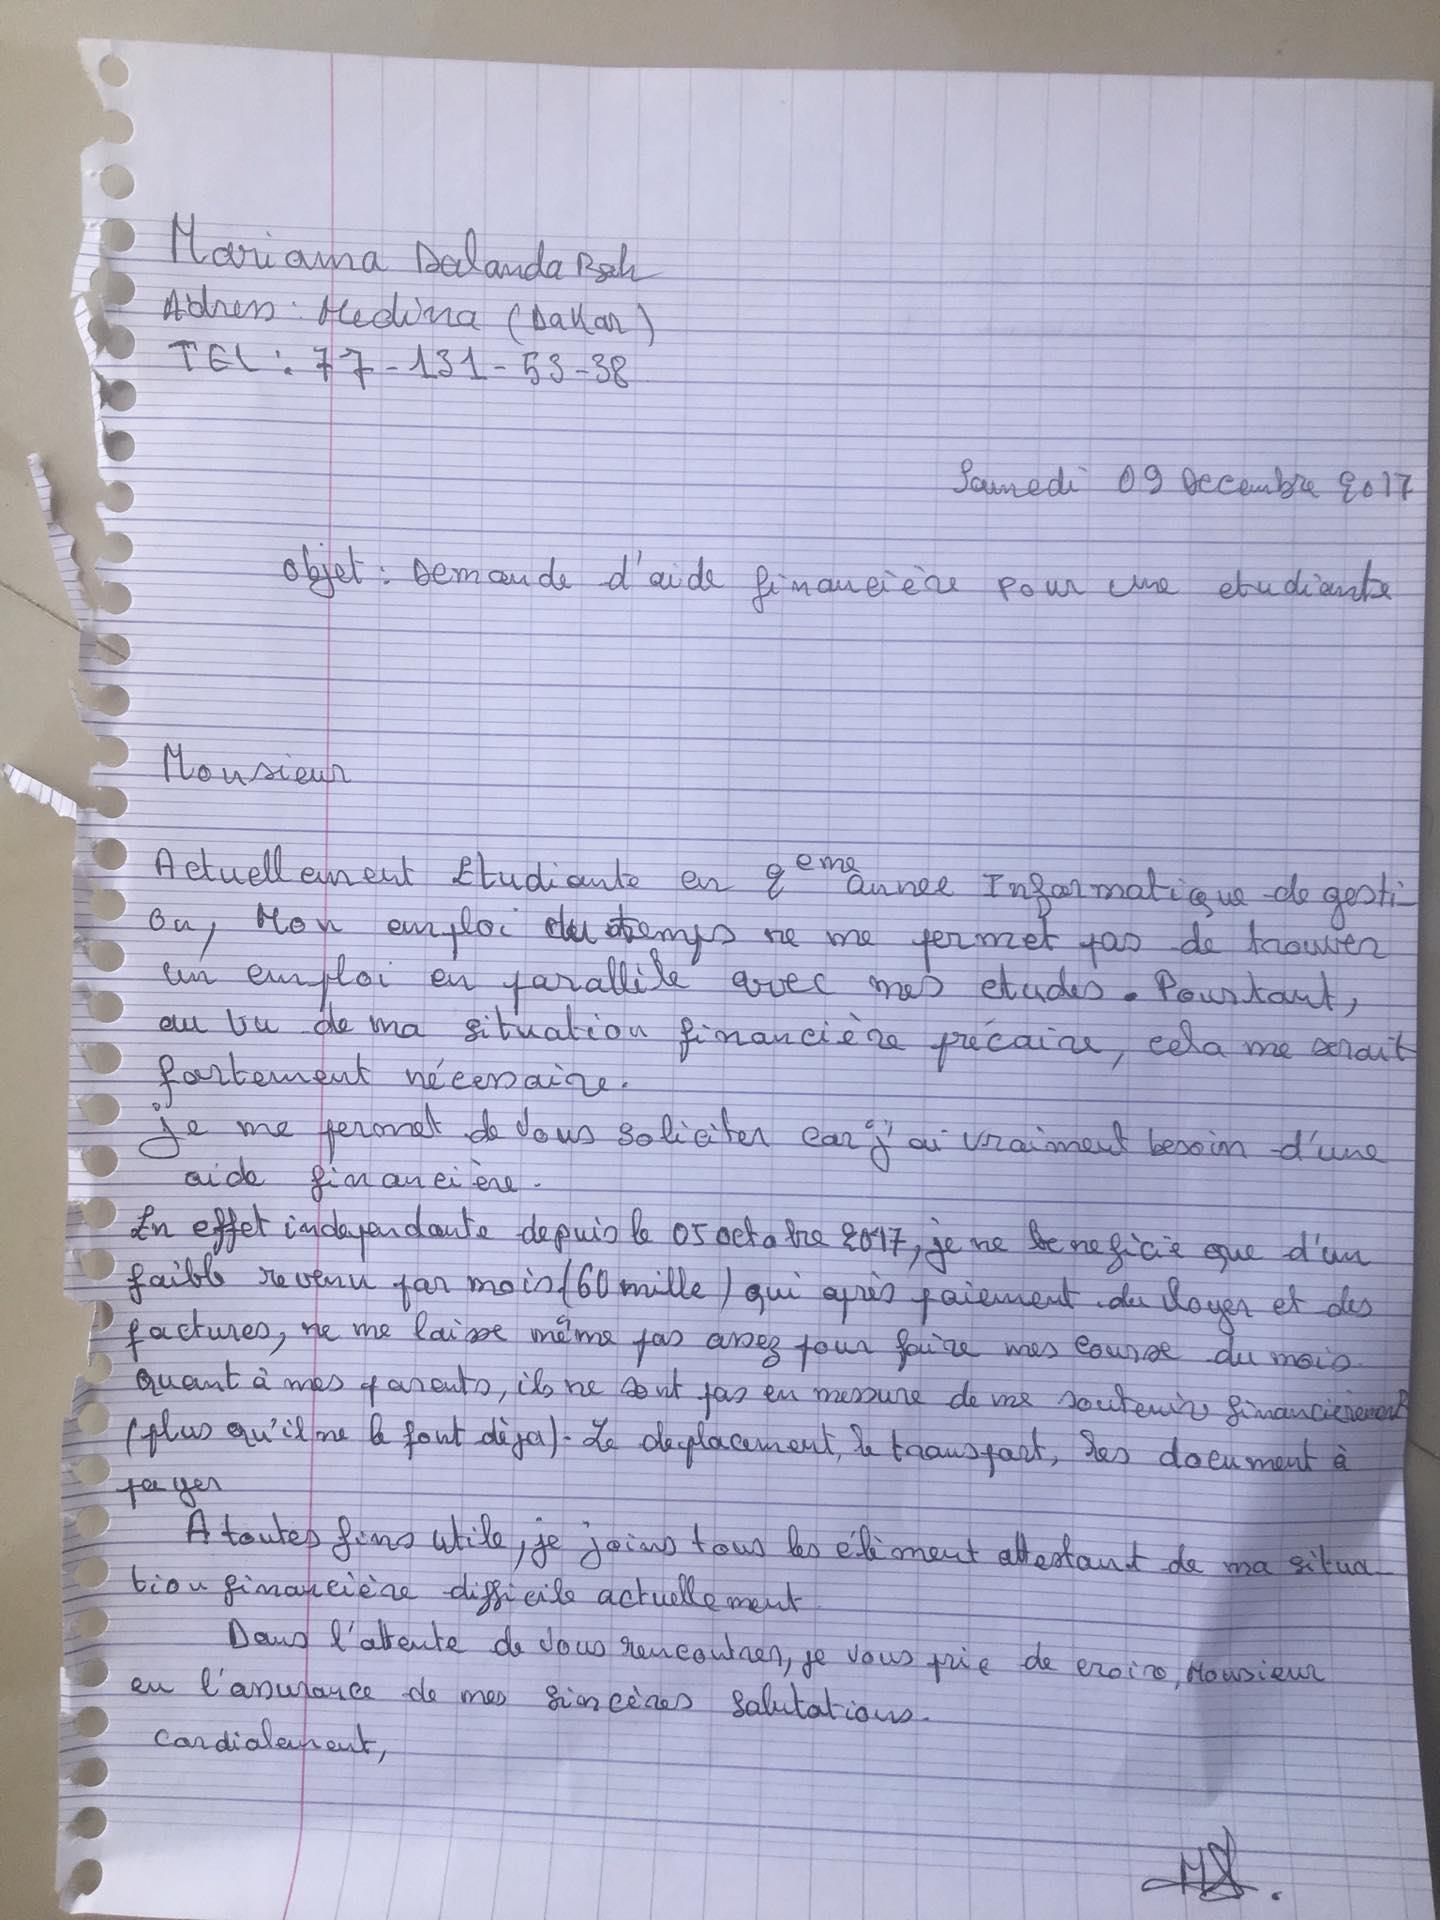 Mariama Dalanda Bah
Adress : Medina (Dakar)
TEL : 77-131-53-38
Samedi 09 Decembre 2017
Objet : Demande d'aide financière pour une etudiante
Monsieur
Actuellement Etudiante en 2eme annee Informatique de gesti-
on, Mon emploi du temps ne me permet pas de trouver
un emploi en parallèle avec mes etudes. Pourtant,
au vu de ma situation financière précaire, cela me serait
fortement nécessaire.
je me permet de vous soliciter car j'ai vraiment besoin d'une
aide financière.
En effet independante depuis le 05 octobre 2017, je ne beneficie que d'un
faible revenu par mois (60 mille) qui après paiement du loyer et des
factures, ne me laisse même pas assez pour faire mes course du mois.
quant à mes parents, ils ne sont pas en messure de me soutenir financierement
(plus qu'il ne le font dèja). Le deplacement, le transport, les document à
payer
A toutes fins utile, je joins tous les élèment attestant de ma situa-
tion financière difficile actuellement.
Dans l'attente de vous rencontrer, je vous prie de croire, Monsieur
en l'assurance de mes sincères salutations.
Cordialement,